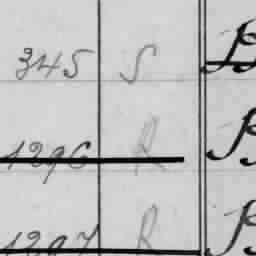 345 S
1296 R
1297 R